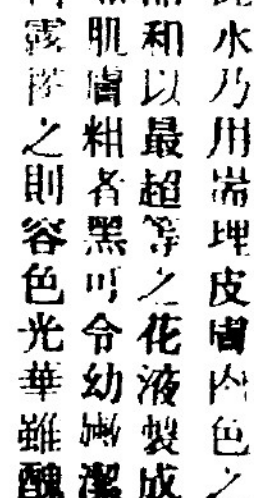 水乃用耑理皮膚肉色之
和以最超等之花液製成
肌膚粗者黑可令幼嫩潔
露搽之則容色光華雖醜